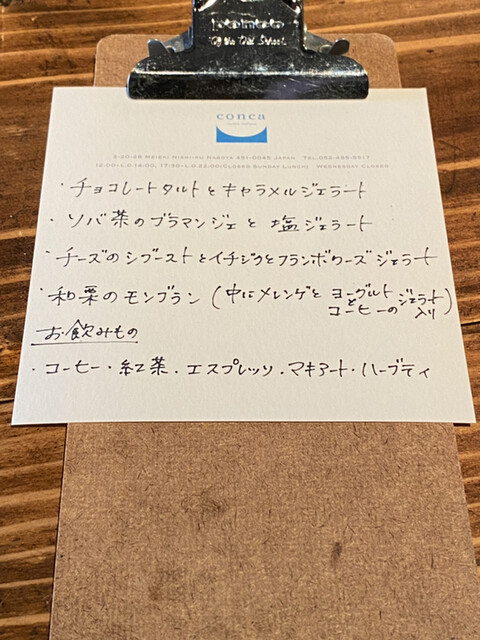 conca
2-20-28 Meieki Nishiku Nagoya 451-0045 Japan
12:00~L.O.14:00, 17:30~L.O.22:00(Closed Sunday Lunch) Wednesday Closed
・チョコレートタルトとキャラメルジェラート
・ソバ茶のブラマンジェと塩ジェラート
・チーズのシブーストとイチジクとフランボワーズジェラート
・和栗のモンブラン(中にメレンゲとヨーグルトとコーヒーのジェラート入り)
お飲みもの
・コーヒー・紅茶・エスプレッソ・マキアート・ハーブティ